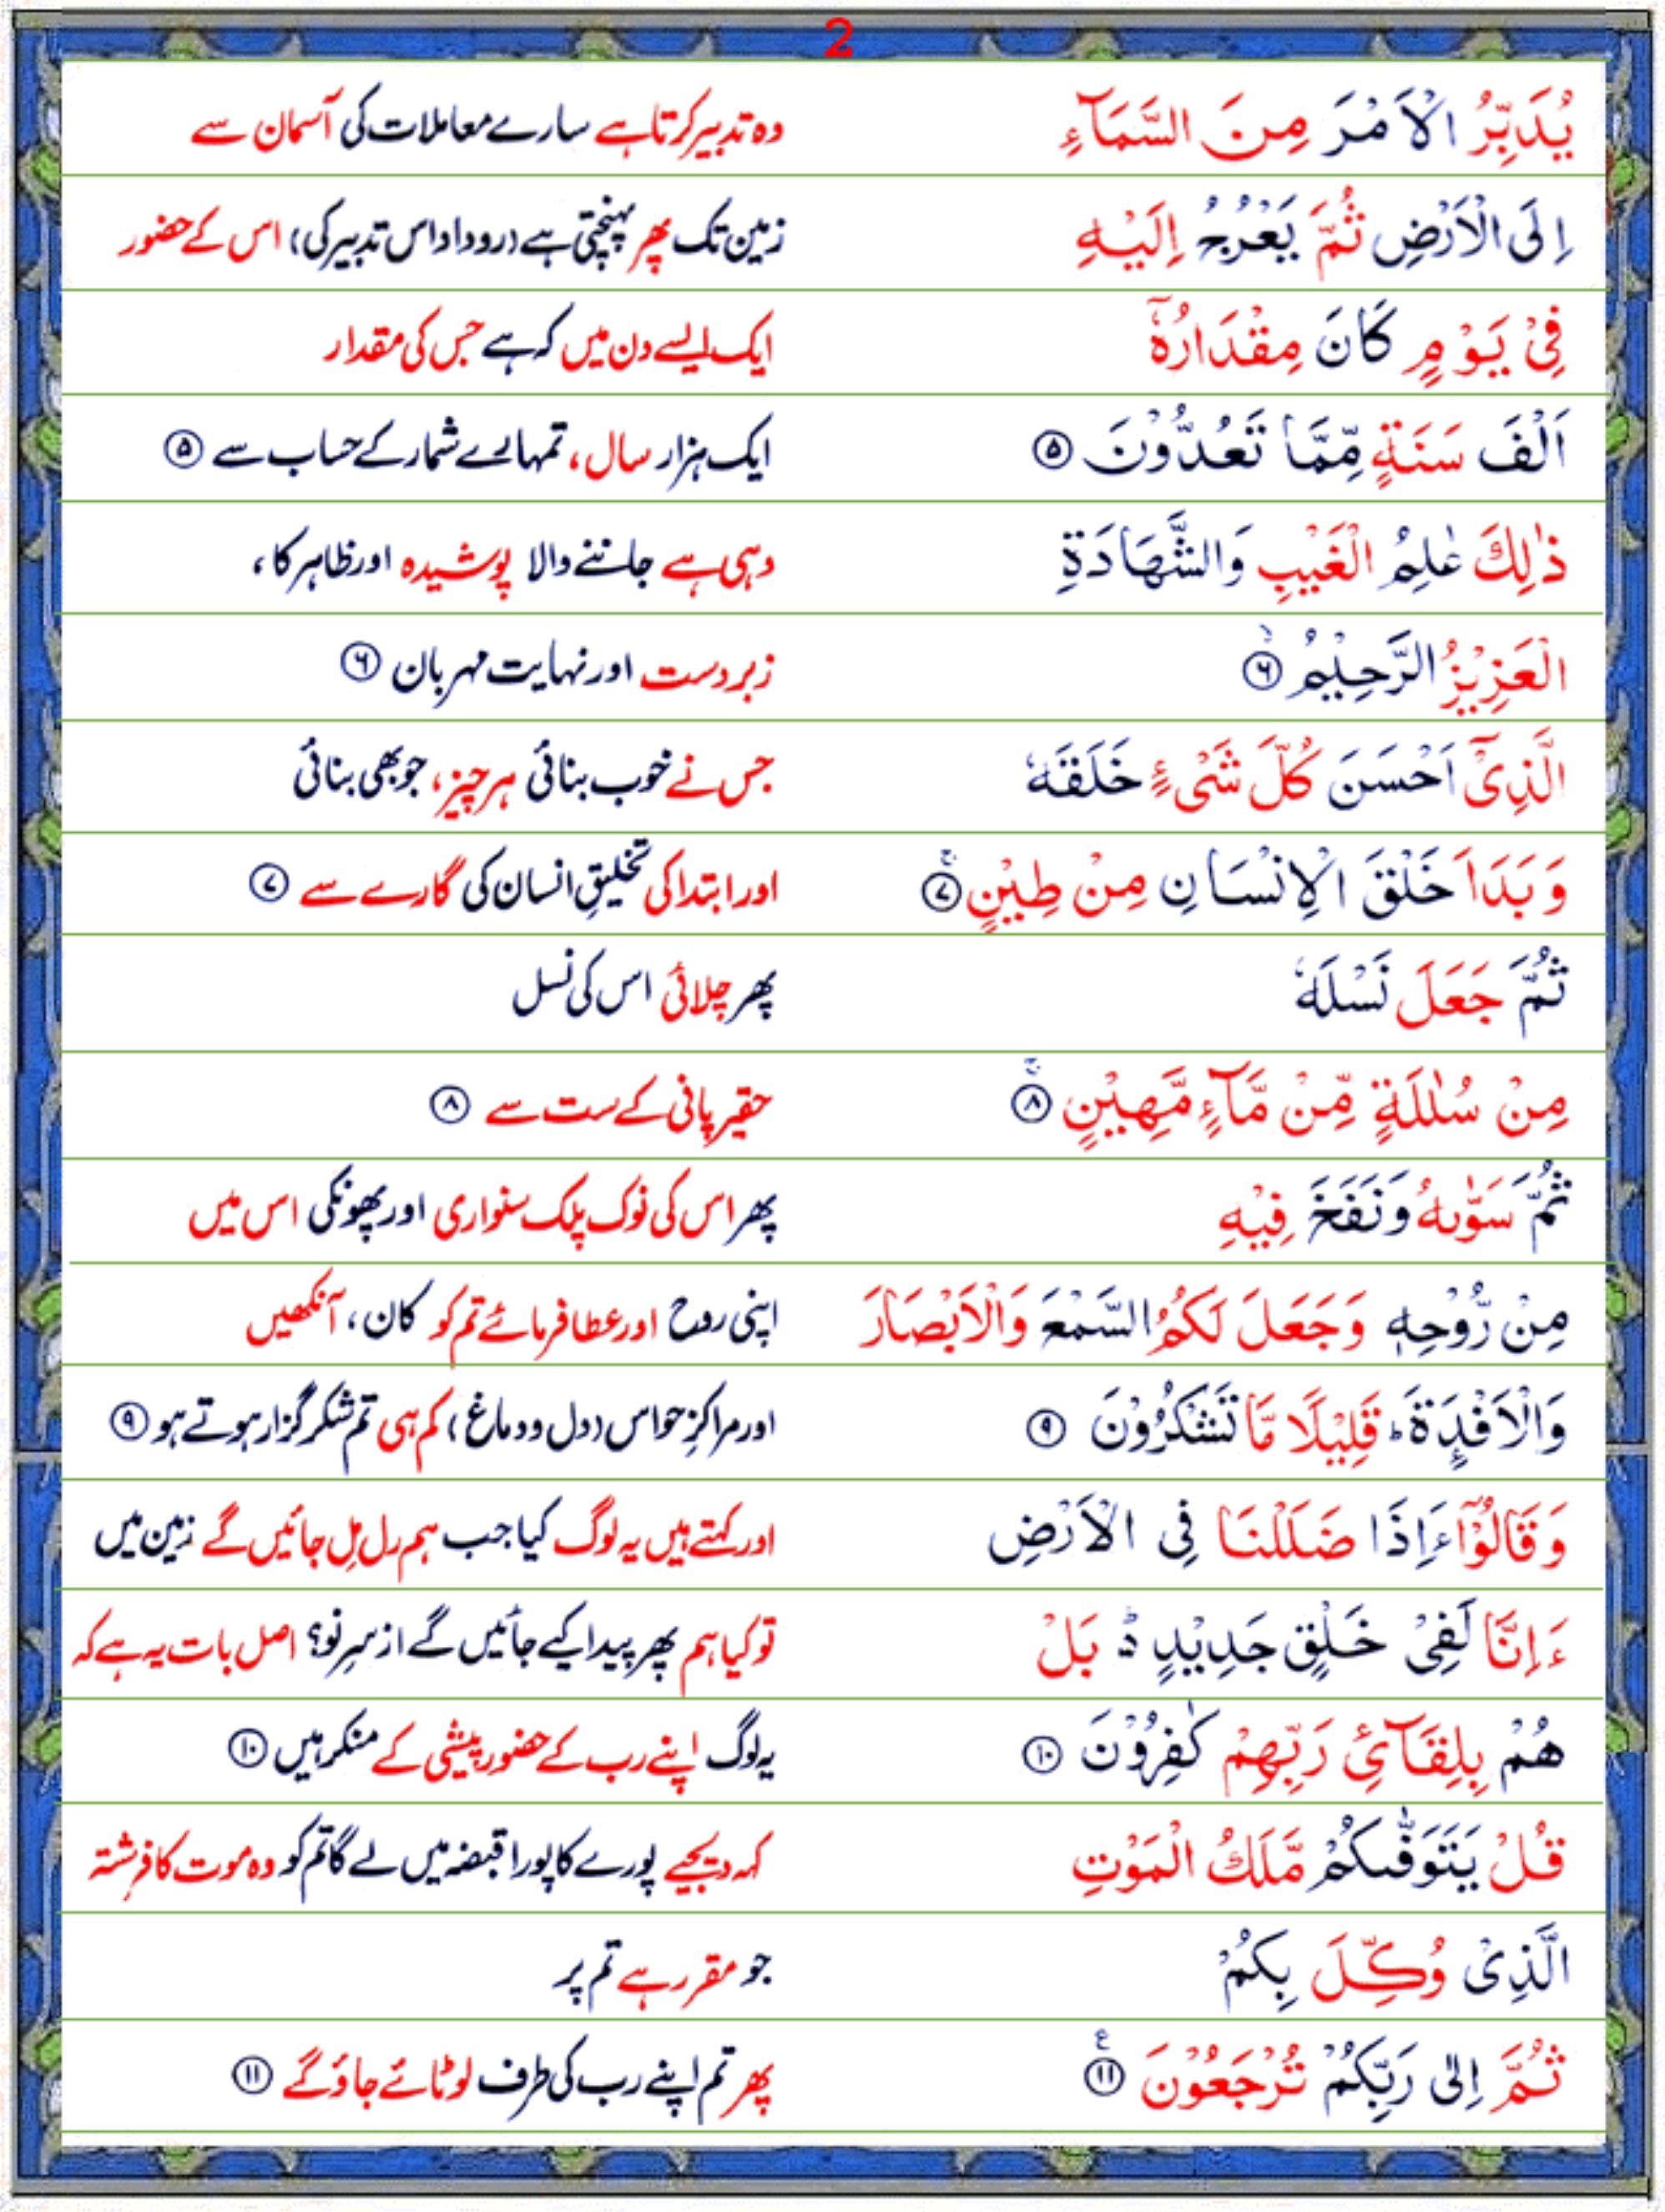 2
يُدَبِّرُ الْاَمْرَ مِنَ السَّمَآءِ وہ تدبیر کرتا ہے سارے معاملات کی آسمان سے
اِلَى الْاَرْضِ ثُمَّ يَعْرُجُ اِلَيْهِ زمین تک پھر پہنچتی ہے (روداد اس تدبیر کی) اس کے حضور
فِىْ يَوْمٍ كَانَ مِقْدَارُهٗۤ ایک ایسے دن میں کہ ہے جس کی مقدار
اَلْفَ سَنَةٍ مِّمَّا تَعُدُّوْنَ ۵ ایک ہزار سال، تمہارے شمار کے حساب سے ۵
ذٰلِكَ عٰلِمُ الْغَيْبِ وَالشَّهَادَةِ وہی ہے جاننے والا پوشیدہ اور ظاہر کا،
الْعَزِيْزُ الرَّحِيْمُ ۙ ۶ زبردست اور نہایت مہربان ۶
الَّذِىْۤ اَحْسَنَ كُلَّ شَىْءٍ خَلَقَهٗ جس نے خوب بنائی ہر چیز، جو بھی بنائی
وَبَدَاَ خَلْقَ الْاِنْسَانِ مِنْ طِيْنٍ ۚ ۷ اور ابتدا کی تخلیقِ انسان کی گارے سے ۷
ثُمَّ جَعَلَ نَسْلَهٗ پھر چلائی اس کی نسل
مِنْ سُلٰلَةٍ مِّنْ مَّآءٍ مَّهِيْنٍ ۚ ۸ حقیر پانی کے ست سے ۸
ثُمَّ سَوّٰىهُ وَنَفَخَ فِيْهِ پھر اس کی نوک پلک سنواری اور پھونکی اس میں
مِنْ رُّوْحِهٖ وَجَعَلَ لَكُمُ السَّمْعَ وَالْاَبْصَارَ اپنی روح اور عطا فرمائے تم کو کان، آنکھیں
وَالْاَفْـِٕدَةَ ؕ قَلِيْلًا مَّا تَشْكُرُوْنَ ۹ اور مراکزِ حواس (دل و دماغ) کم ہی تم شکر گزار ہوتے ہو ۹
وَقَالُوْۤا ءَاِذَا ضَلَلْنَا فِى الْاَرْضِ اور کہتے ہیں یہ لوگ کیا جب ہم رل مِل جائیں گے زمین میں
ءَاِنَّا لَفِىْ خَلْقٍ جَدِيْدٍ ؕ بَلْ تو کیا ہم پھر پیدا کیے جائیں گے از سرِ نو؟ اصل بات یہ ہے کہ
هُمْ بِلِقَآئِ رَبِّهِمْ كٰفِرُوْنَ ۱۰ یہ لوگ اپنے رب کے حضور پیشی کے منکر ہیں ۱۰
قُلْ يَتَوَفّٰٮكُمْ مَّلَكُ الْمَوْتِ کہہ دیجیے پورے کا پورا قبضہ میں لے گا تم کو وہ موت کا فرشتہ
الَّذِىْ وُكِّلَ بِكُمْ جو مقرر ہے تم پر
ثُمَّ اِلٰى رَبِّكُمْ تُرْجَعُوْنَ ۱۱ ع پھر تم اپنے رب کی طرف لوٹائے جاؤ گے ۱۱